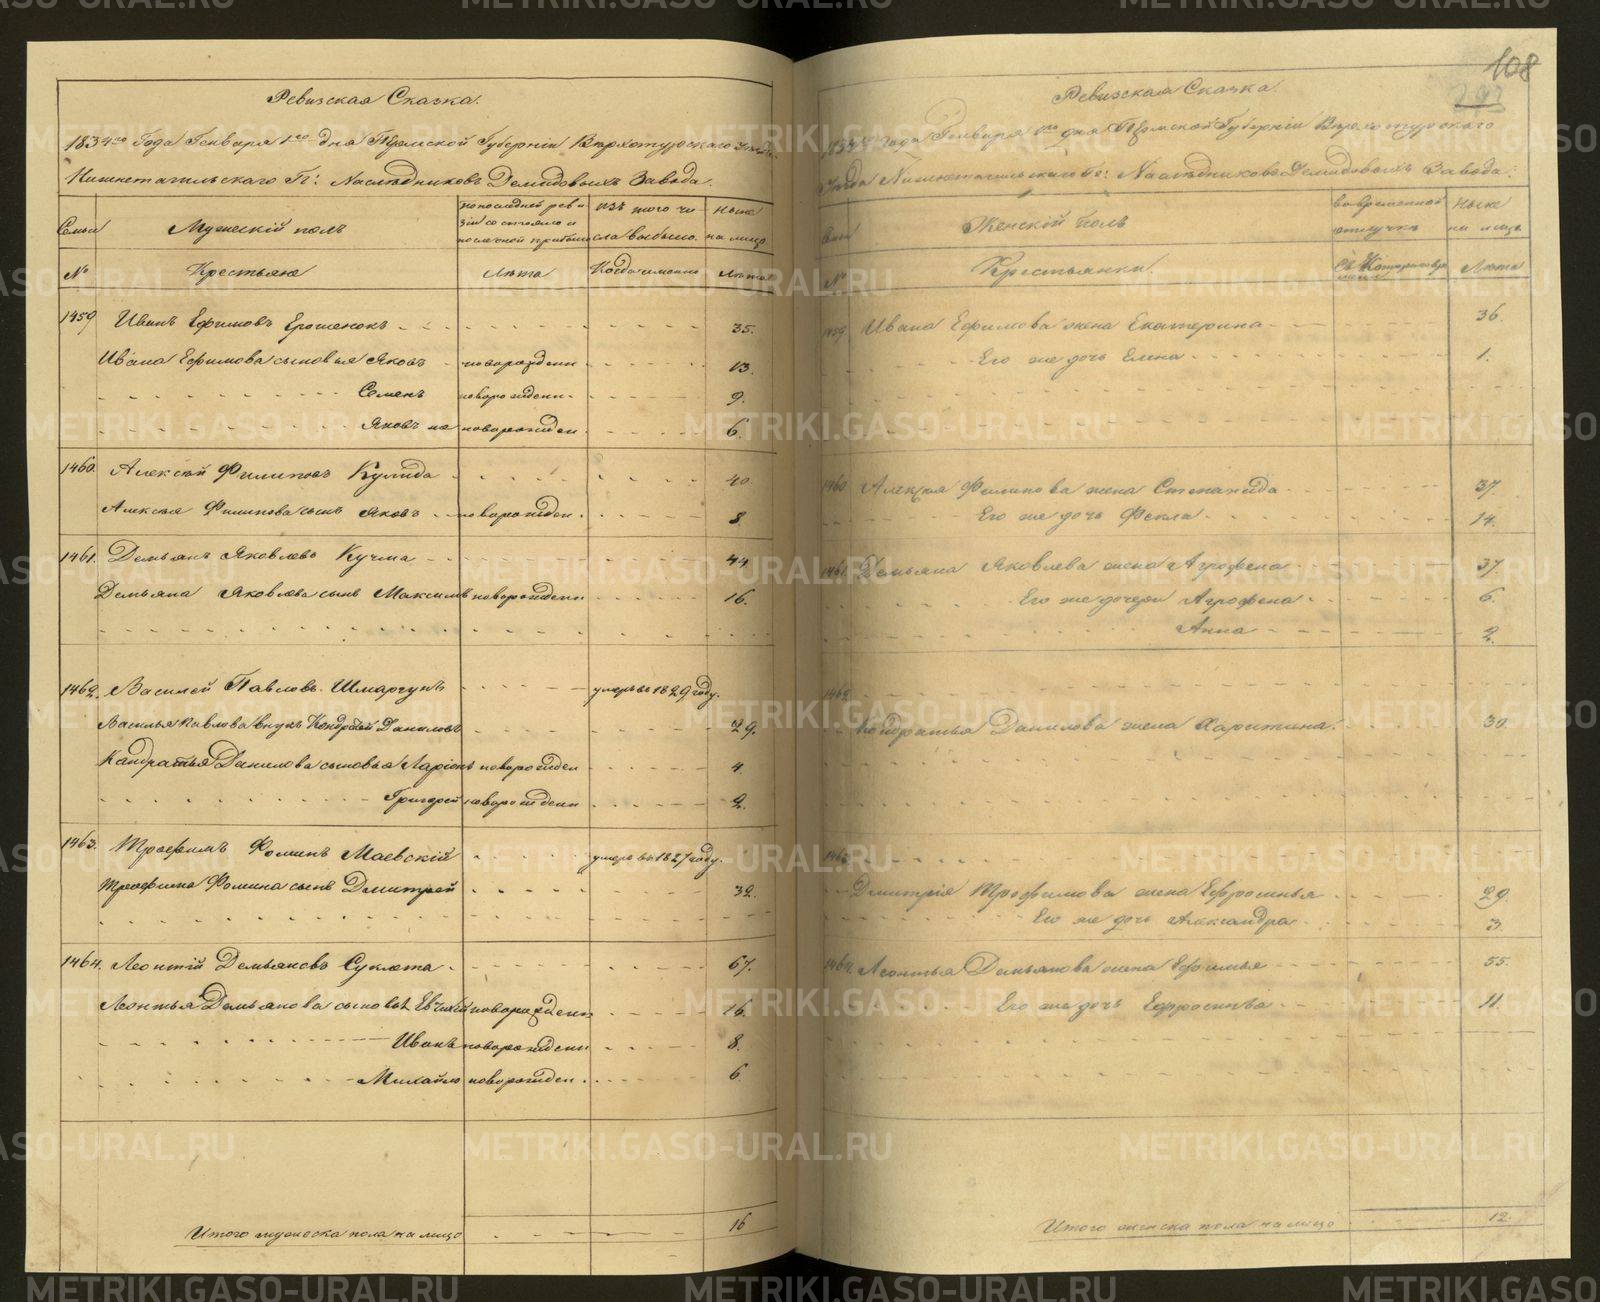 Ревизская Сказка.
1834го Года Генваря 1го дня Пермской Губернiи Верхотурского Уезда
Нижнетагильского Гг: Наследниковъ Демидовыхъ Завода.
Семьи
Мужескiй полъ
По последней реви
зiи состояло и
после оной прибыло
Изъ того чи
сла выбыло.
Ныне
на лицо
№
Крестьяне
Лета
Когда именно
Лета
1459 Иванъ Ефимовъ Ерошенокъ 35.
Ивана Ефимова сыновья Яковъ новорожденн 13.
Семенъ новорожденн. 9.
Яковъ же новорожден 6.
1460. Алексей Филиповъ Кулида 40.
Алексея Филипова сынъ Яковъ новорожден. 8.
1461. Демьянъ Яковлевъ Кучма 44.
Демьяна Яковлева сынъ Максимъ новорожденн 16.
1462. Василей Павловъ Шмаргунъ умеръ въ 1829 году.
Василья Павлова внукъ Кондратей Даниловъ 29.
Кандратья Данилова сыновья Ларiонъ новорожден 4.
Григорей новорожденн 2.
1463. Трофимъ Фоминъ Маевскiй умеръ въ 1827 году.
Трофима Фомина сынъ Дмитрей 32.
1464. Леонтiй Демьяновъ Суклета 67.
Леонтья Демьянова сыновья новорожденн 16.
Иванъ новорожденн 8.
Михайло новорожден. 6
Итого мужеска пола на лицо 16
108
Ревизская Сказка
1834 года Генваря 1го дня Пермской Губернiи Верхотурского
Уезда Нижнетагильскаго Гг: Наследниковъ Демидовыхъ Завода.
Семьи
Женскiй полъ
Во временной
отлучке
Ныне
на лицо
№
Крестьянки.
Съ Котораго вре
Лета
1459 Ивана Ефимова жена Екатерина 36.
Его же дочь Елена 1.
1460 Алексея Филипова жена Степанида 37.
Его же дочь Фекла 14.
1461 Демьяна Яковлева жена Агрофена 37.
Его же дочери Агрофена 6.
Анна 2.
1462
Кондратья Данилова жена Харитина. 30.
1463
Дмитрiя Трофимова жена Ефросинья 29.
Его же дочь Александра 3.
1464 Леонтья Демьянова жена Ефимья 55.
Его же дочь Ефросинья 11.
Итого женска пола на лицо 12.
METRIKI.GASO-URAL.RU